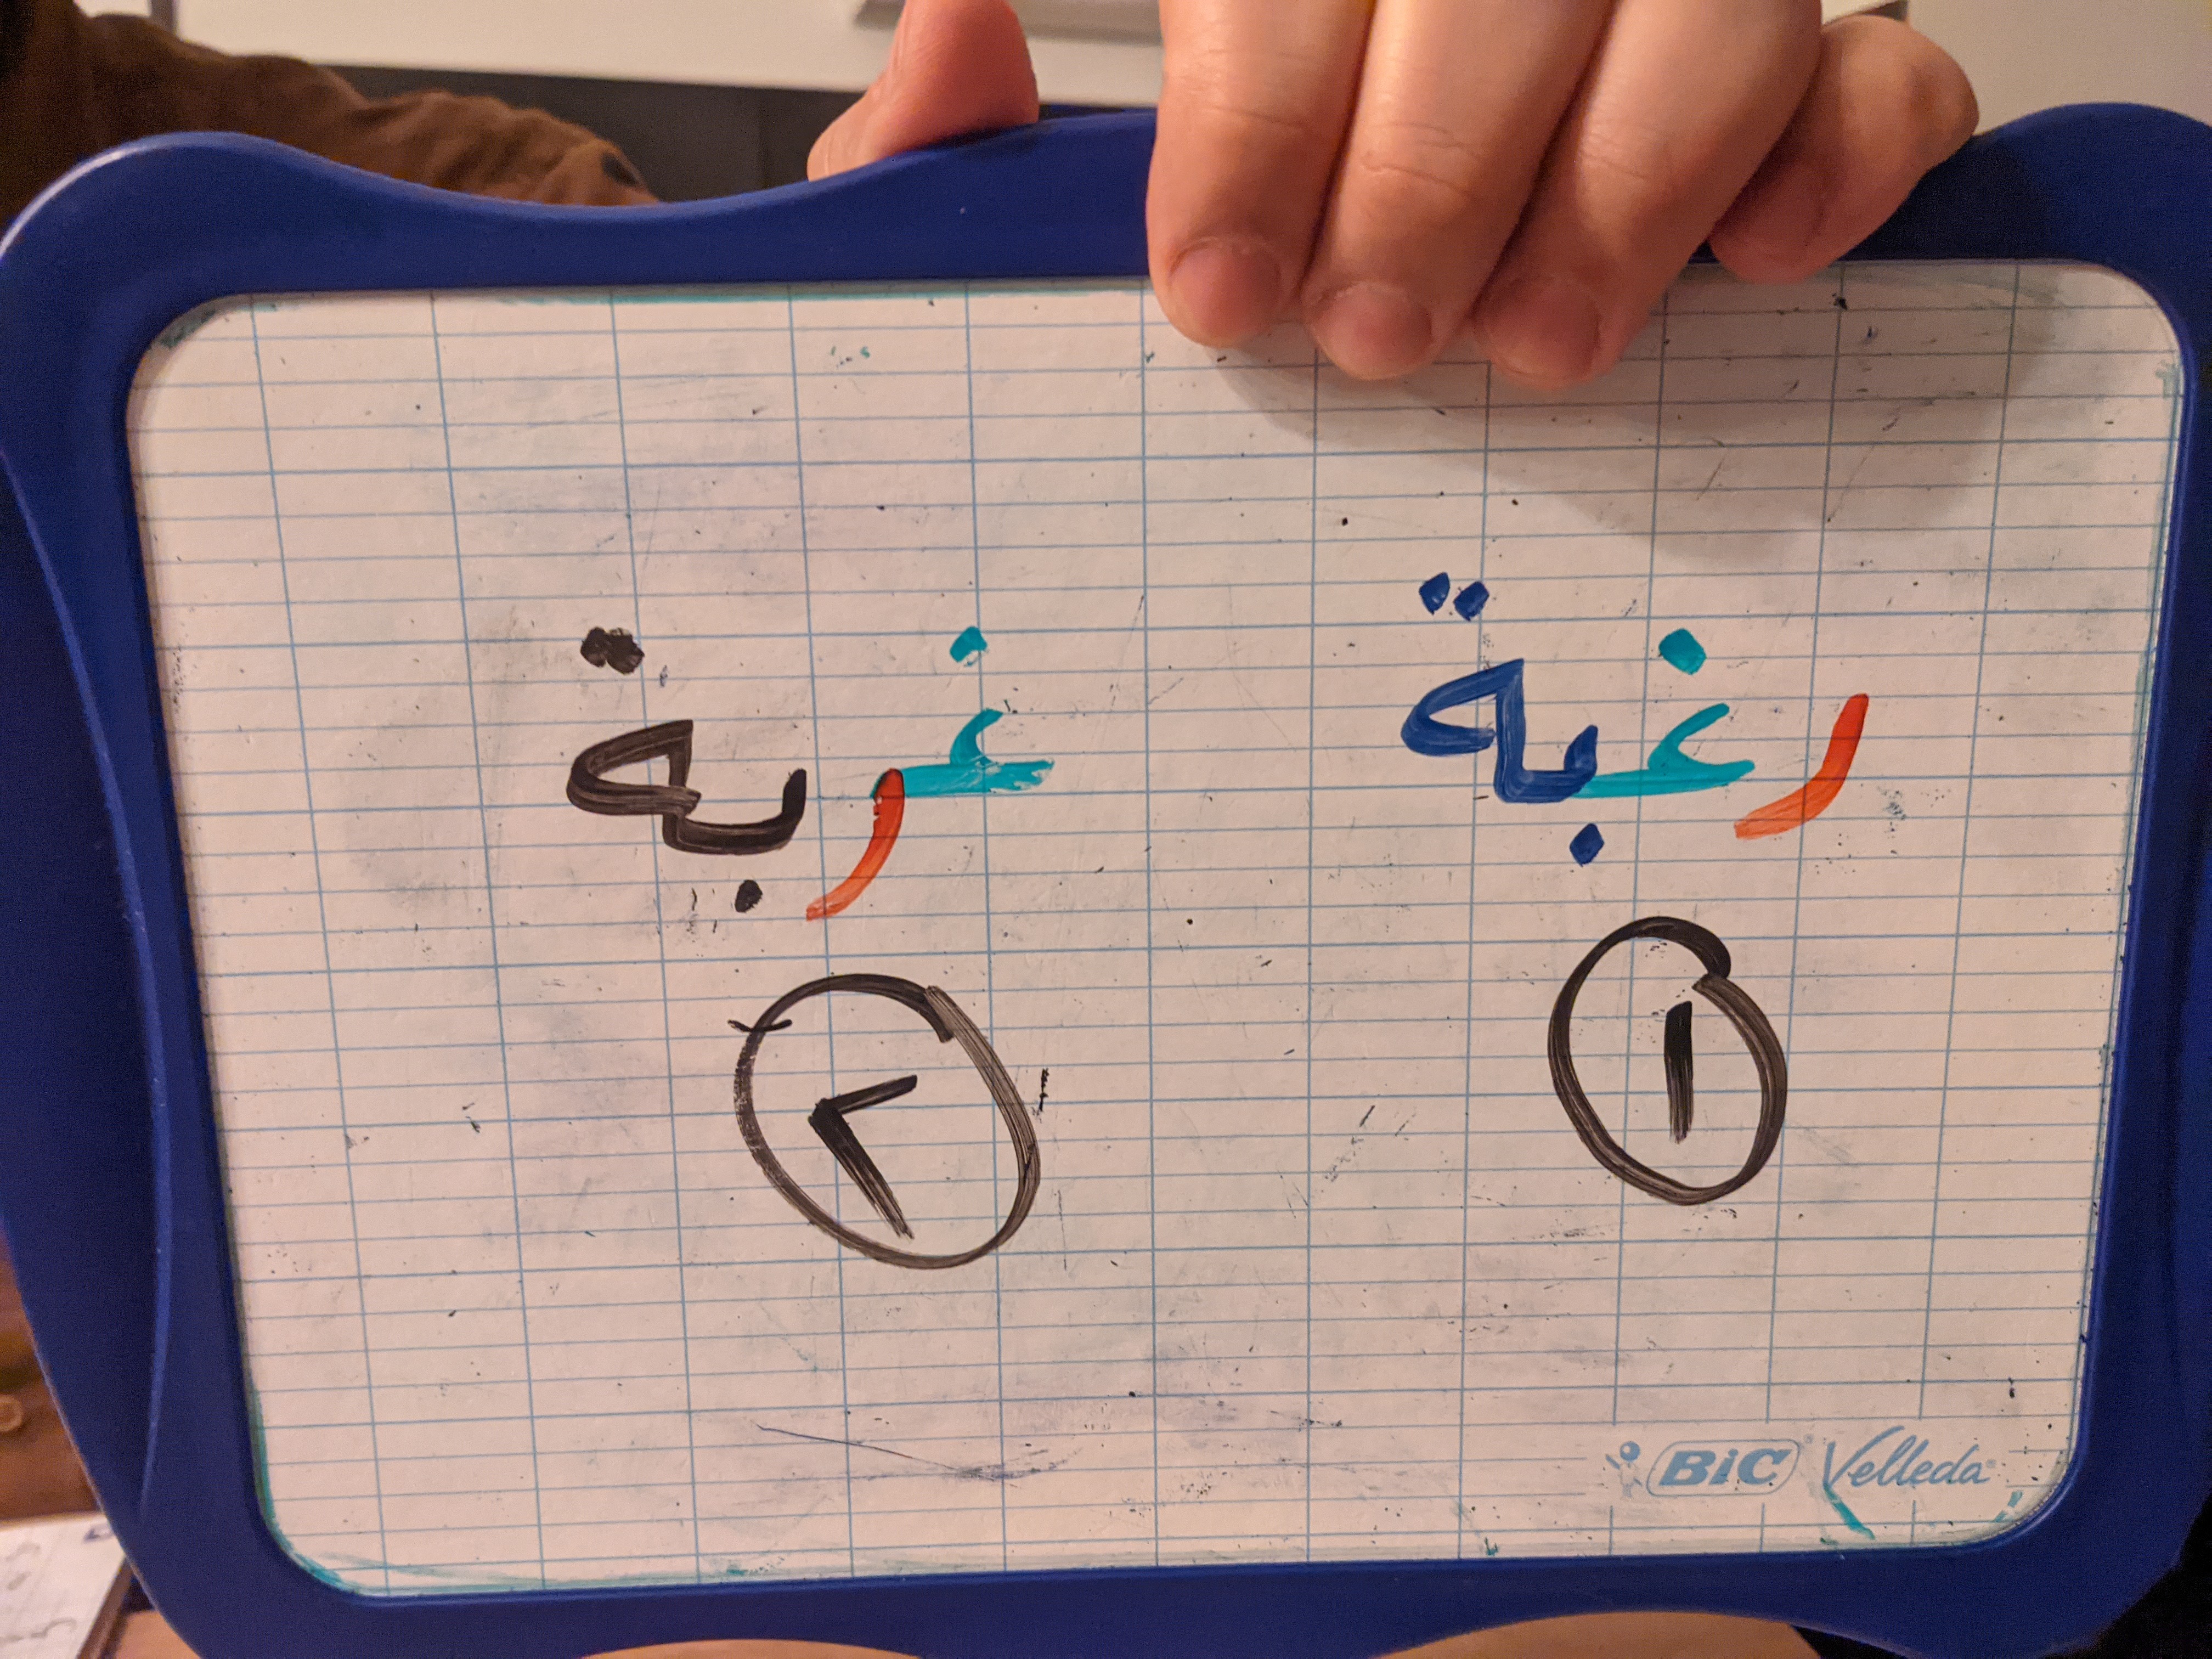 رغبة غربة
١ ٢
BiC Velleda